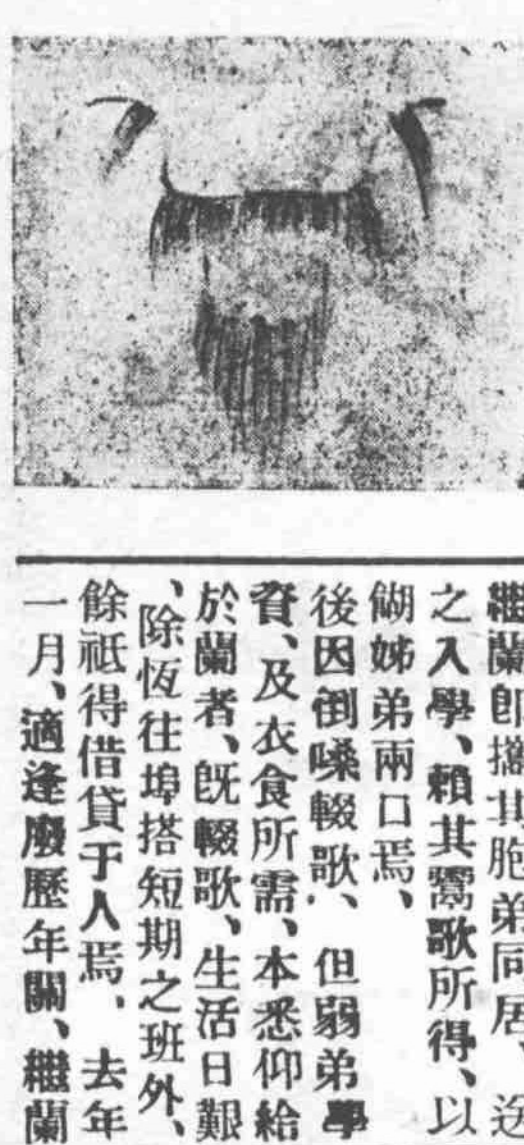 繼蘭卽攜其胞弟同居、送
之入學、賴其鬻歌所得、以
餬姊弟兩口焉、
後因倒嗓輟歌、但弱弟學
資、及衣食所需、本悉仰給
於蘭者、旣輟歌、生活日艱
、除恆往埠搭短期之班外、
餘祗得借貸于人焉、去年
一月、適逢廢歷年關、繼蘭